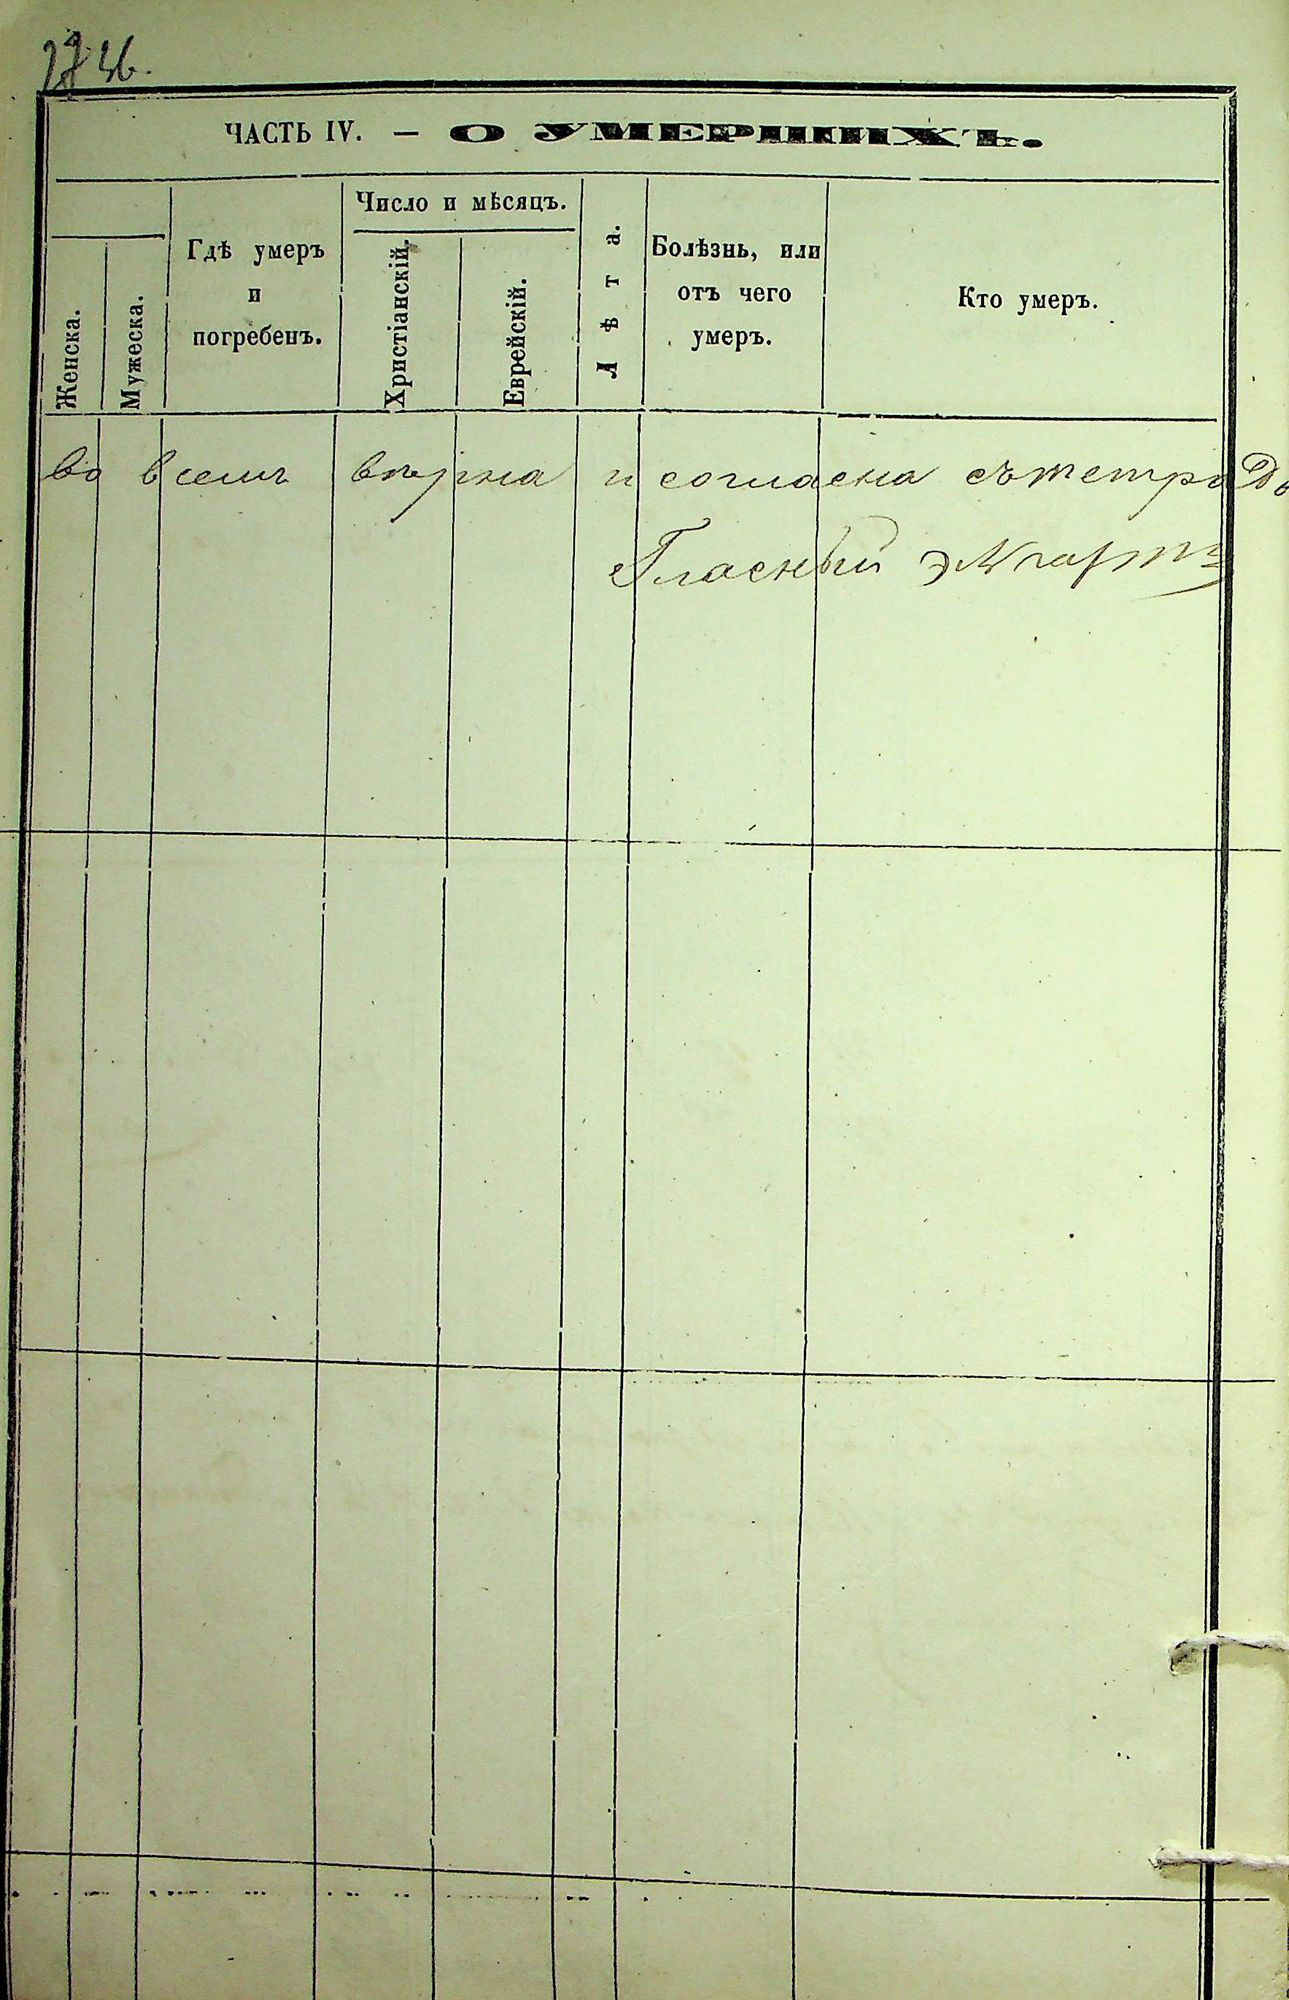 ЧАСТЬ IV. — О УМЕРШИХЪ.
Женска.
Мужеска.
Гдѣ умеръ
и
погребенъ.
Число и мѣсяцъ.
Христіанскій.
Еврейскій.
Лѣта.
Болѣзнь, или
отъ чего
умеръ.
Кто умеръ.
во всемъ вѣрна и согласна съ тетрад
Гласный